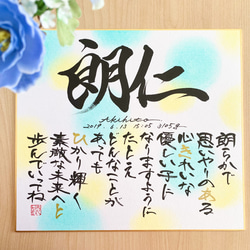 朗仁
Akihito
2019.6.13 15:05 3105g
朗らかで
思いやりのある
心きれいな
優しい子に
なりますように
たとえ
どんなことが
あっても
ひかり輝く
素敵な未来へと
歩んでいってね